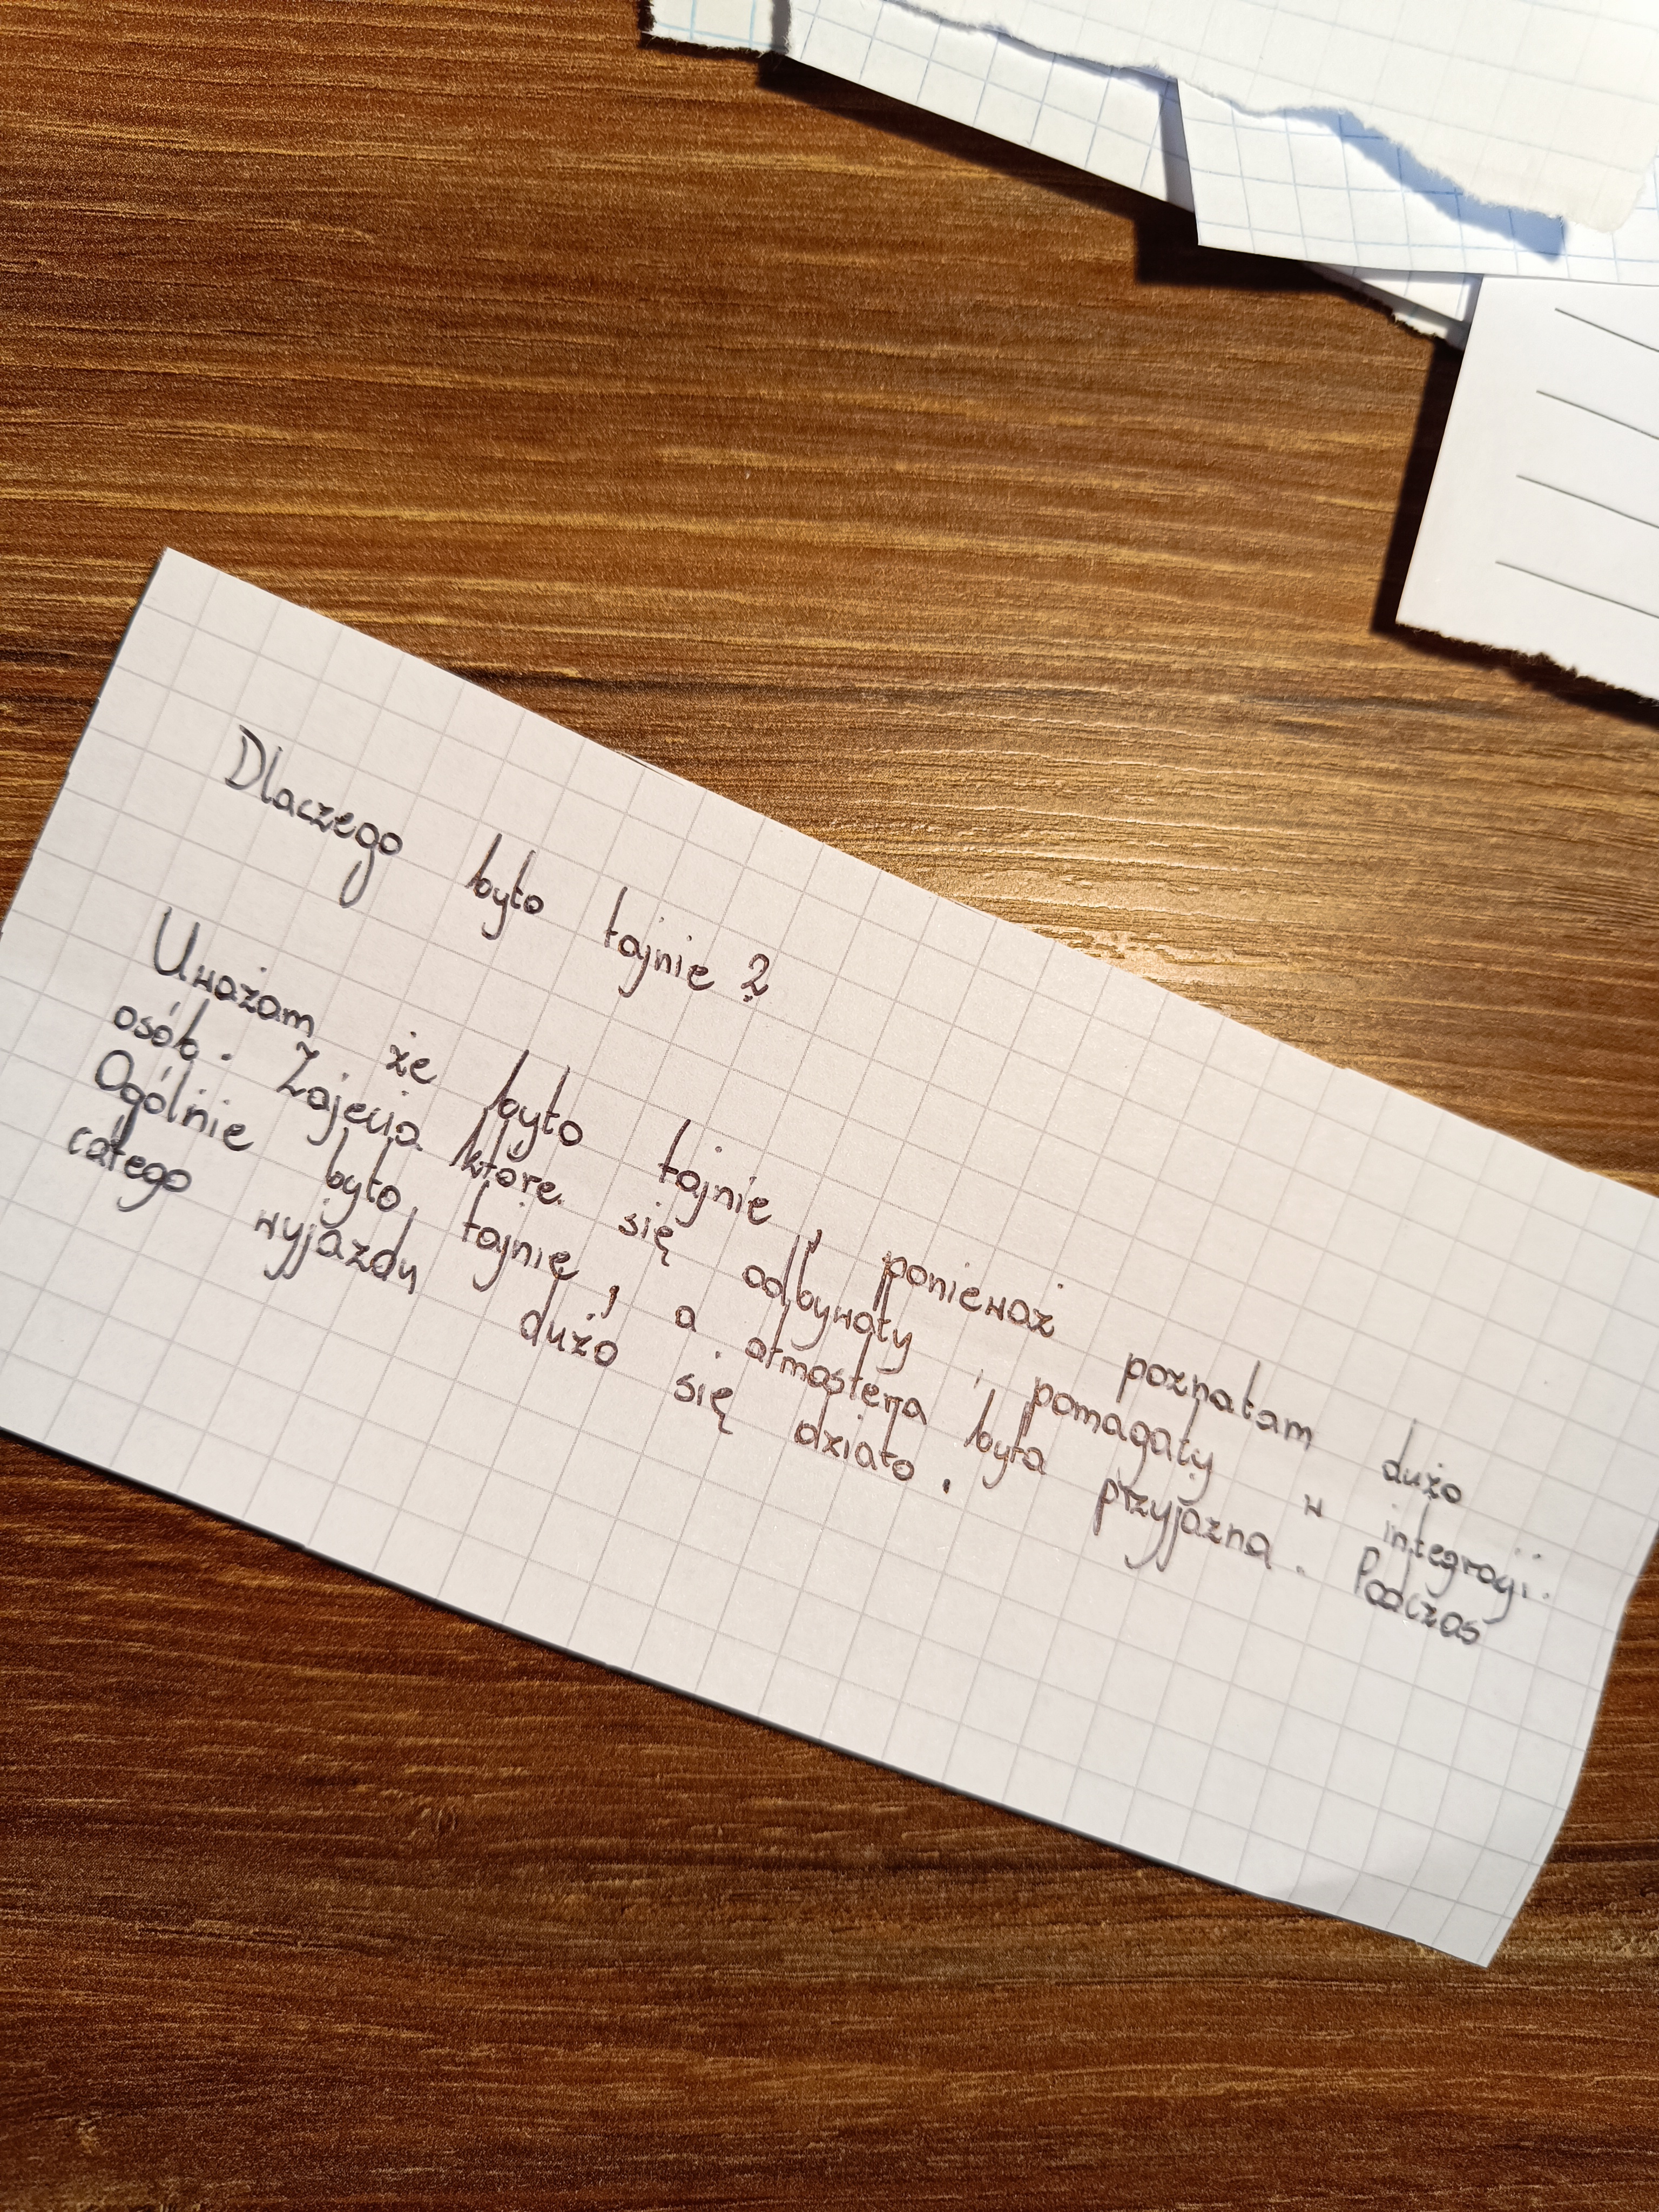 Dlaczego było fajnie ?
Uważam że było fajnie , ponieważ poznałam dużo
osób. Zajęcia które się odbywały pomagały w integracji.
Ogólnie było fajnie , a atmosfera była przyjazna . Podczas
całego wyjazdu dużo się działo .